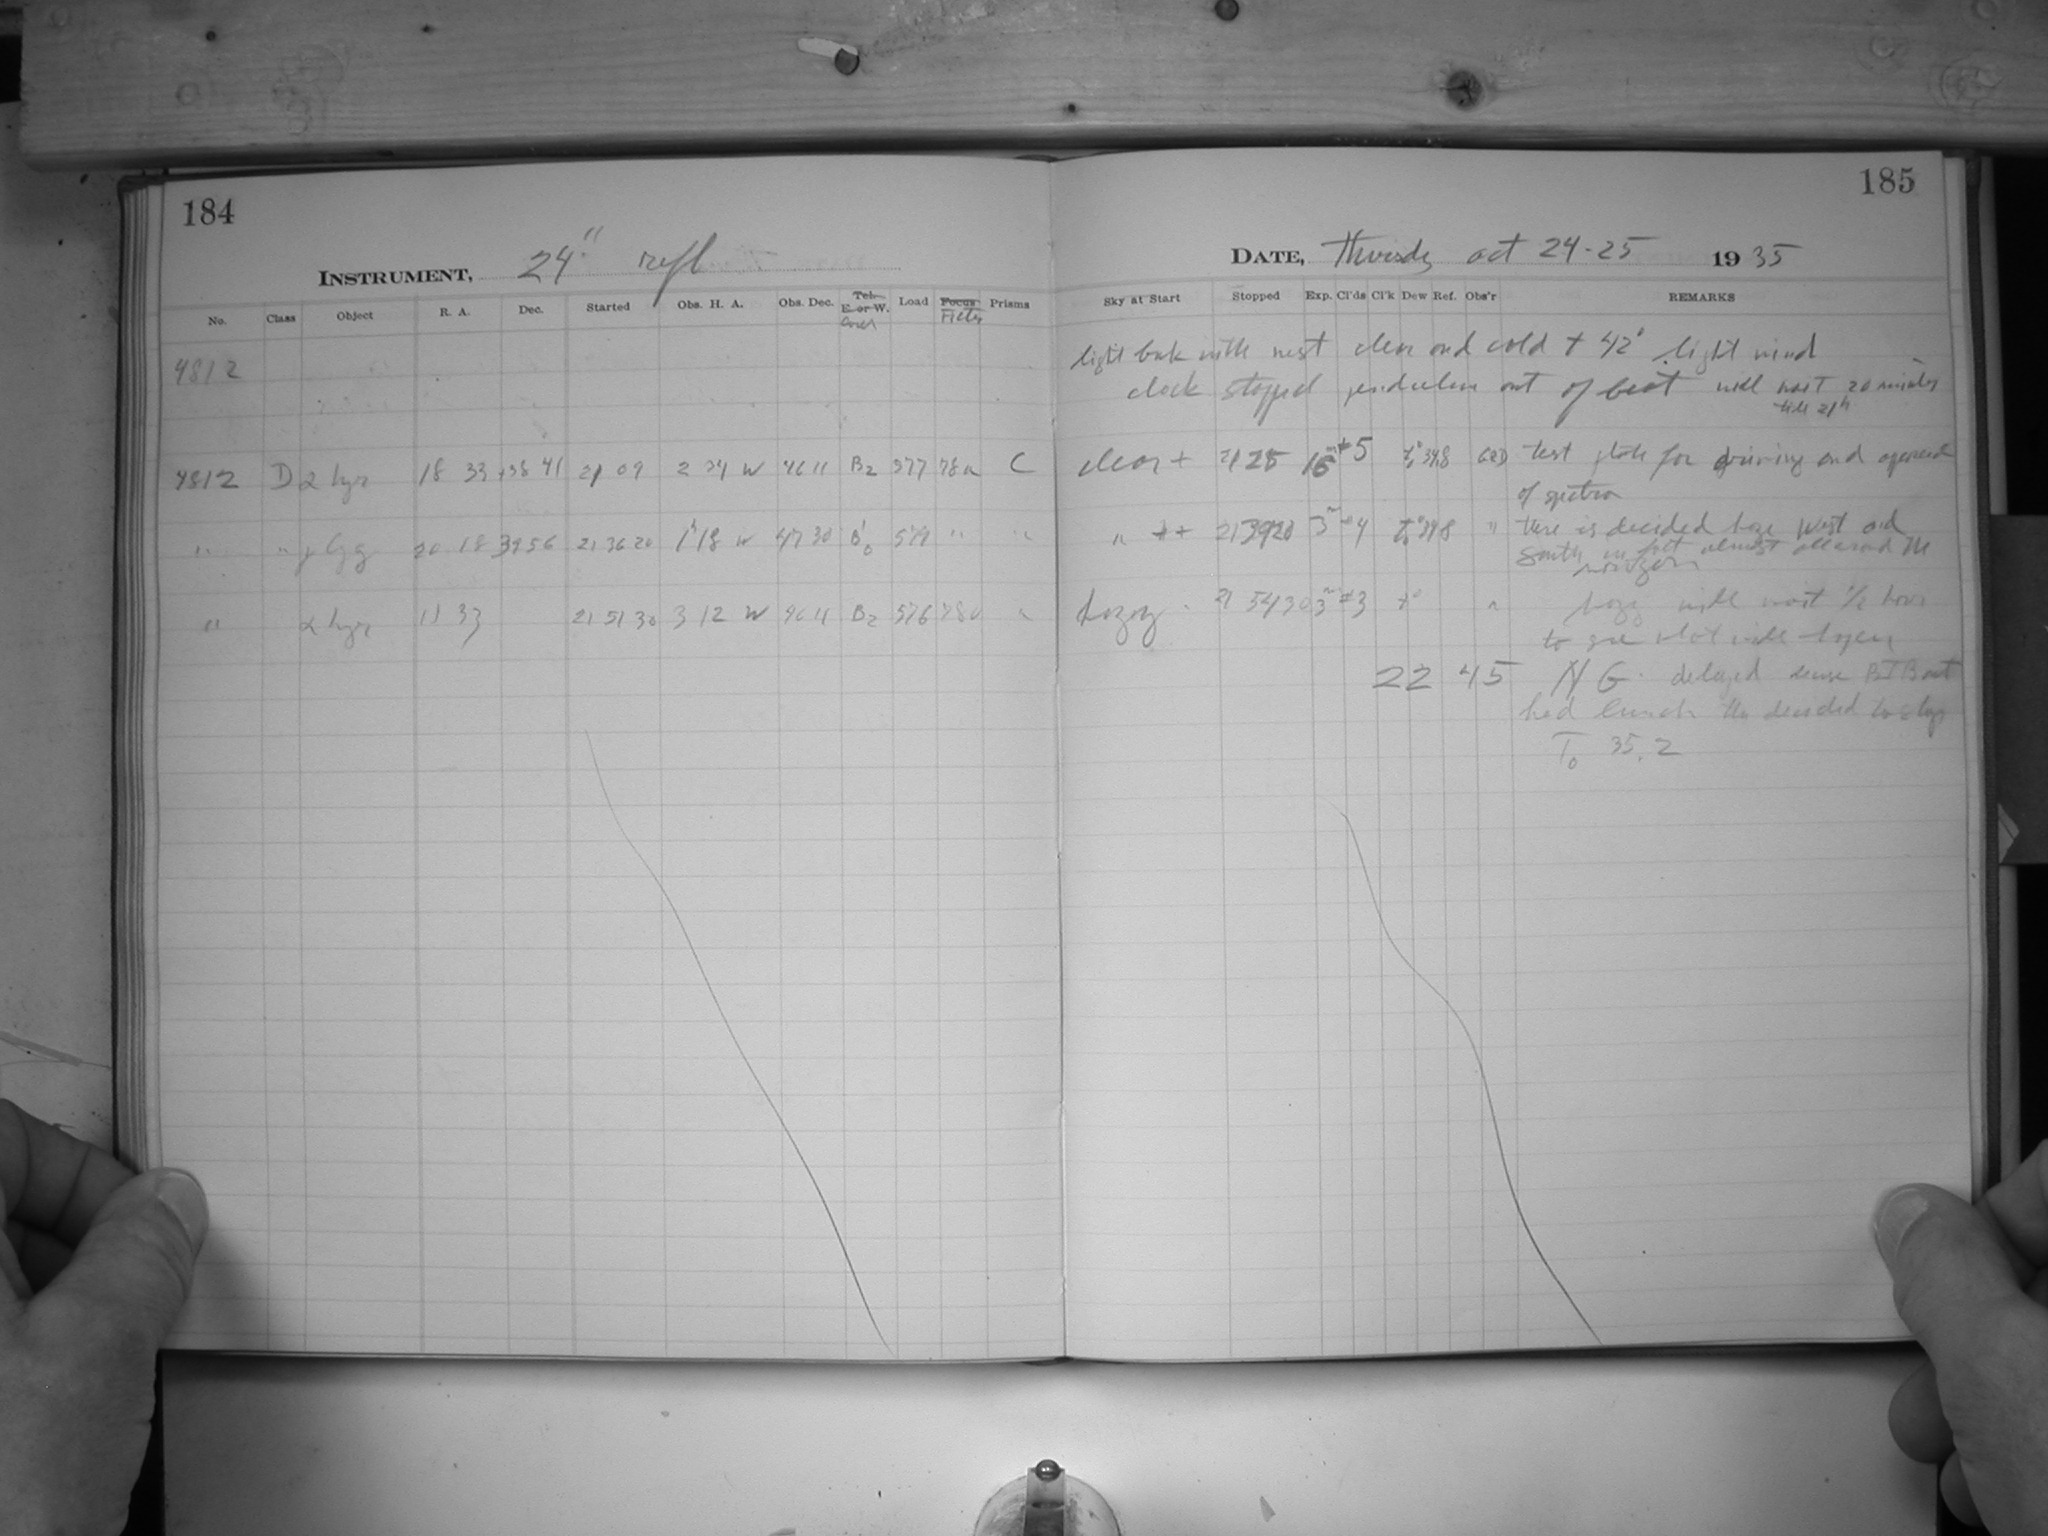 184
INSTRUMENT, 24" refl
No. Class Object R. A. Dec. Started Obs. H. A. Obs. Dec. Tel. E. or W. Cover Load Focus Filter Prisms
4812
4812 D α Lyr 18 33 +38 41 21 09 2 24 W 4611 B2 577 78a C
" " γ Cyg 20 18 39 56 21 36 20 1 18 W 47 30 579 " "
" α Lyr 21 51 30 3 12 W 4611 B2 576 "
185
DATE, Thursdy oct 24-25 1935
Sky at Start Stopped Exp. Cl'ds Cl'k Dew Ref. Obs'r REMARKS
light with mist clear and cold + 42° light wind
clock stopped pendulum out of beat will wait 20 minutes
till 21h
clear + 21 25 16m 5 test plate for driving and
of spectra
" ++ 21 39 20 3m 4 " there is decided haze West and
South in fact almost all around the
horizon
hazy 21 54 30 3m 3 " haze will wait 1/2 hour
to see what will happen
22 45 N G. delayed
had lunch decided to stop
T0 35.2